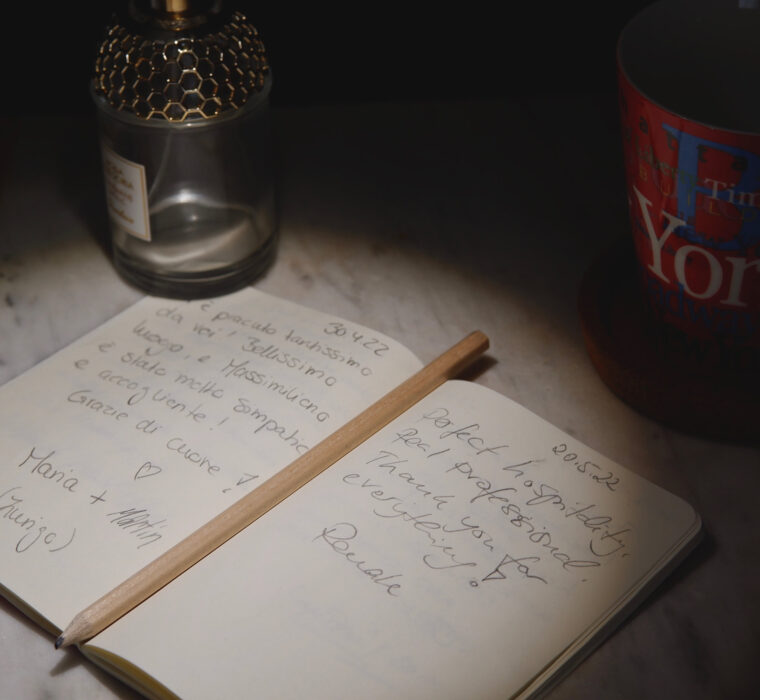 30.4.22
è piaciuto tantissimo
da voi! Bellissimo
luogo, e Massimiliano
è stato molto simpatico
e accogliente!
Grazie di cuore!
♡
Maria + Martin
(Zurigo)
20.5.22
Perfect hospitality,
real professional.
Thank you for
everything!
Renate
Tim
Yor